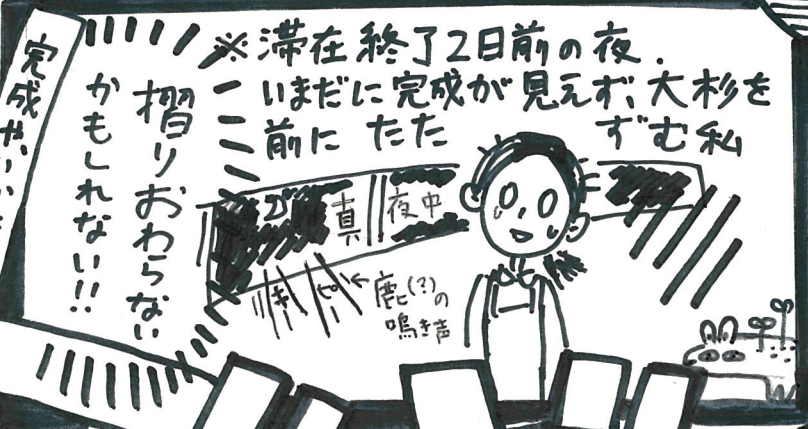 ※滞在終了2日前の夜.
いまだに完成が見えず、大杉を
前に たたずむ私
摺りおわらない
かもしれない!!
真夜中
鹿(?)の
鳴き声